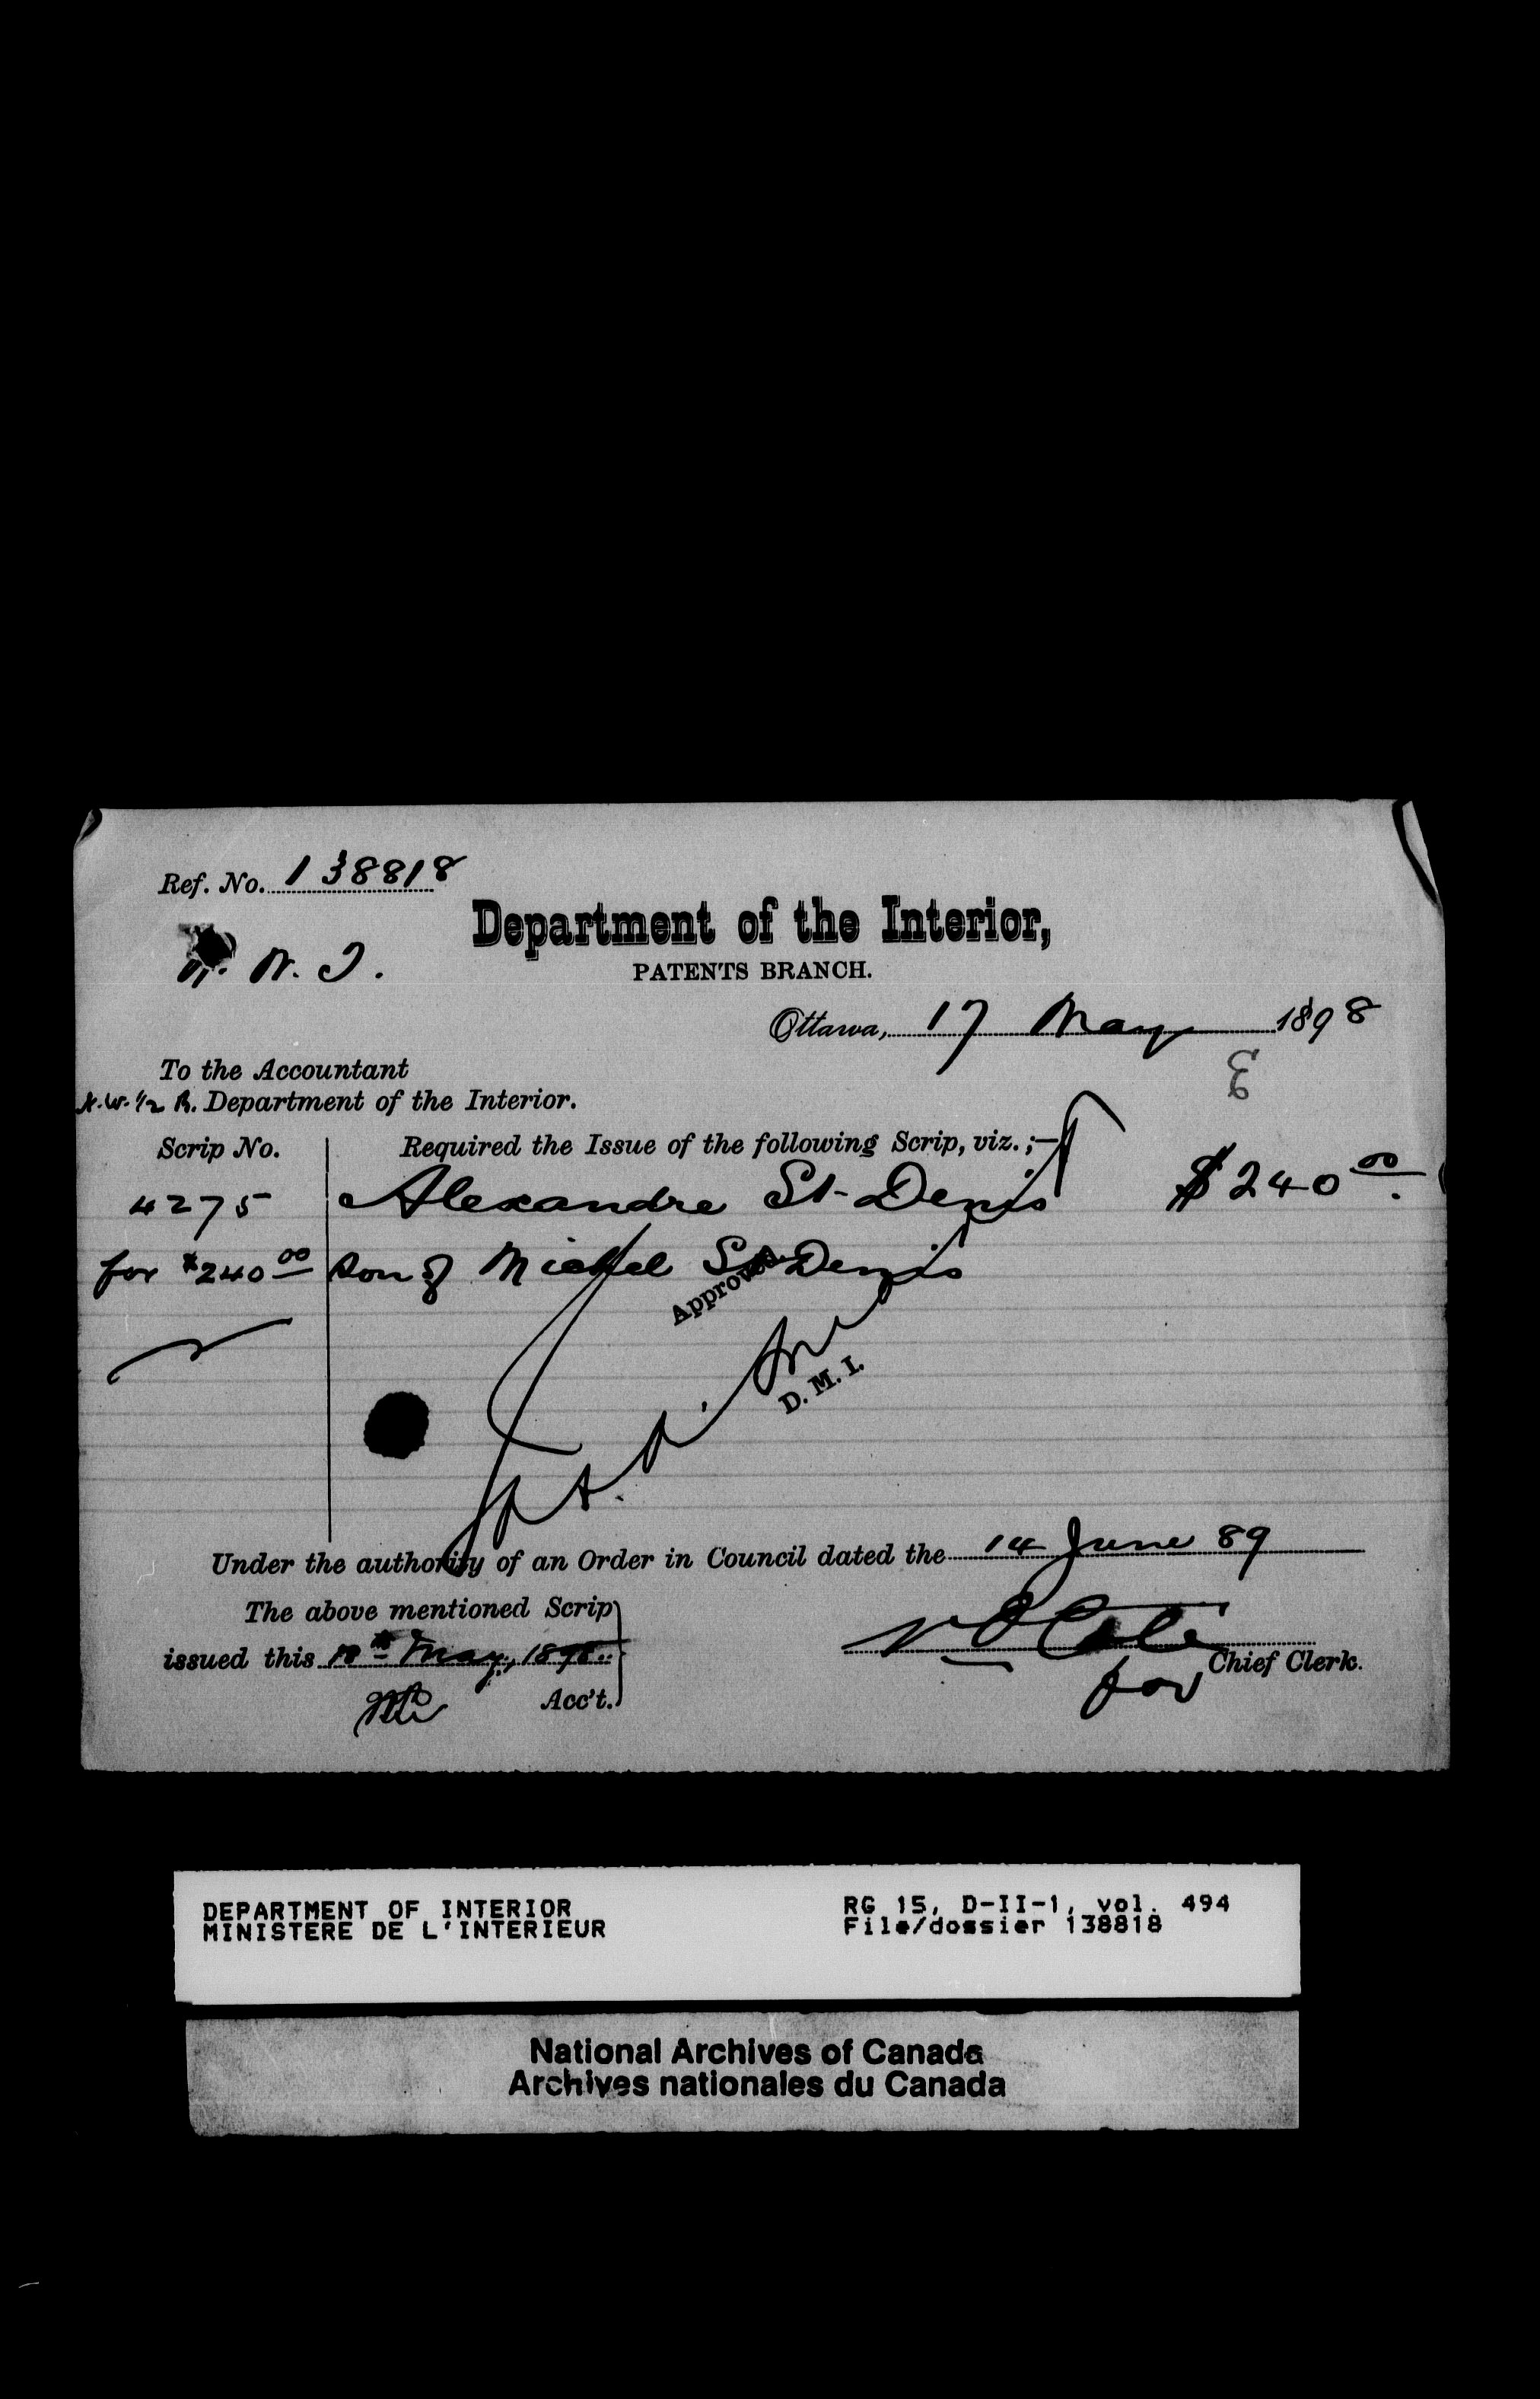 Ref. No. 138818
N. W. T.
Department of the Interior,
PATENTS BRANCH.
Ottawa, 17 May 1898
To the Accountant
N.W. ½ B. Department of the Interior.
Scrip No. Required the Issue of the following Scrip, viz. ;—
4275 Alexandre St-Denis $240 00
for $240 00 son of Michel St-Denis
Approved.
D. M. I.
Under the authority of an Order in Council dated the 14 June 89
The above mentioned Scrip
issued this 18th May, 1898.
Acc't.
N O Coté
for Chief Clerk.
DEPARTMENT OF INTERIOR RG 15, D-II-1, vol. 494
MINISTERE DE L'INTERIEUR File/dossier 138818
National Archives of Canada
Archives nationales du Canada